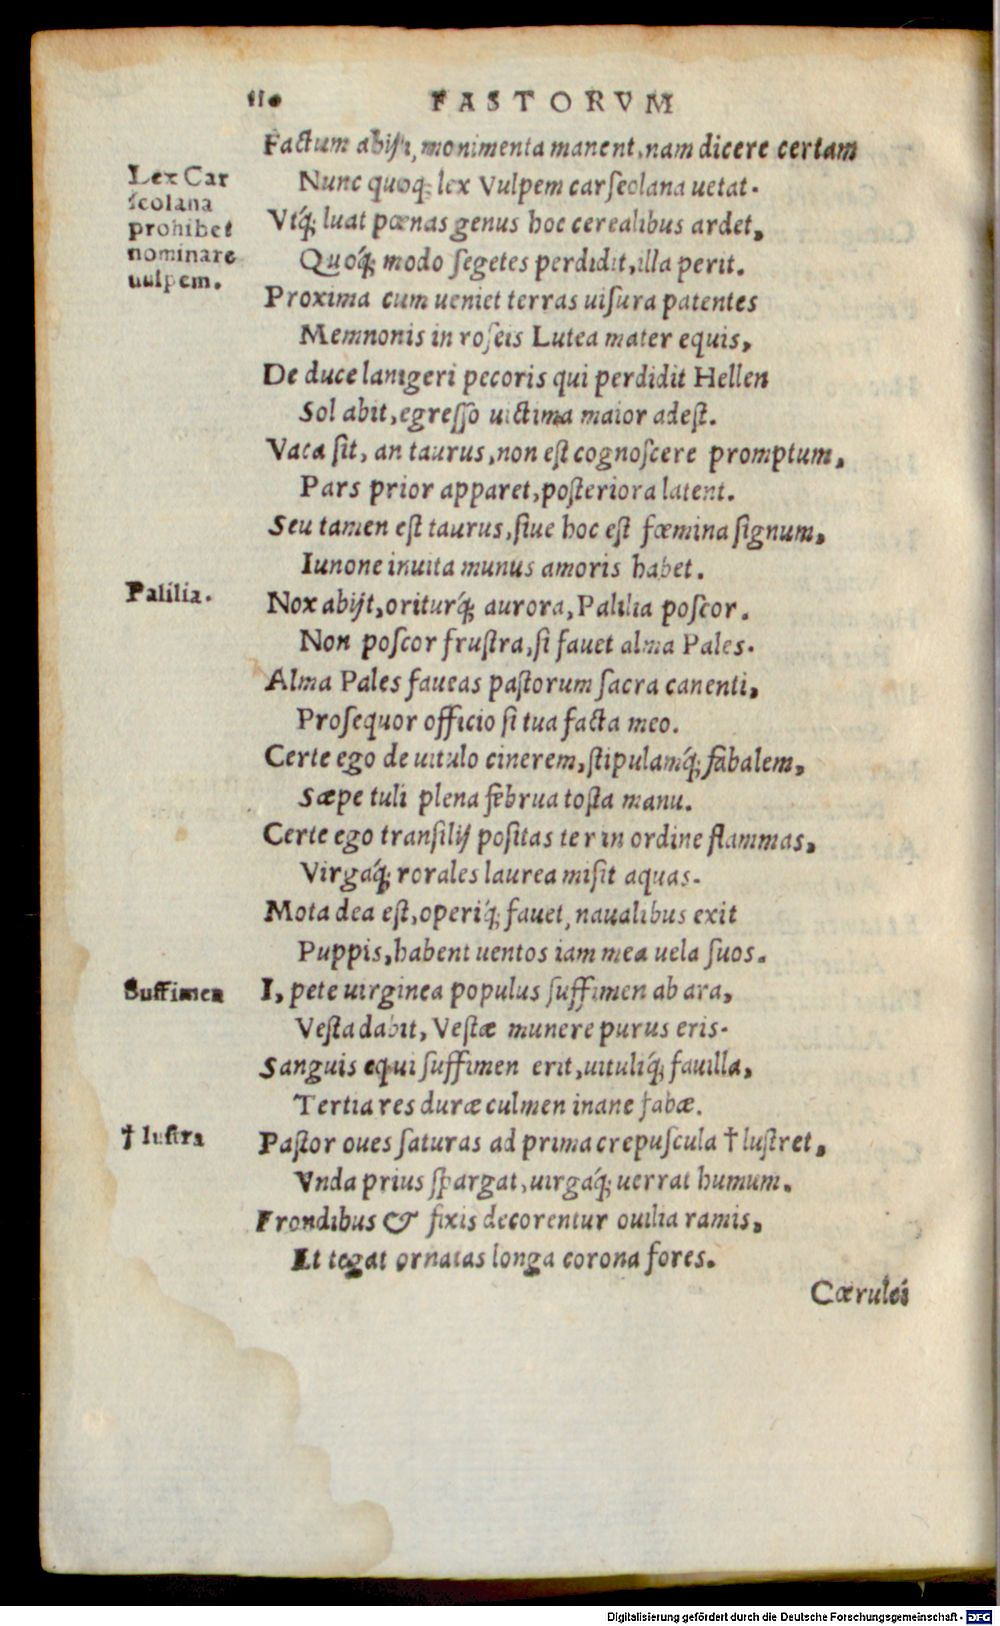 110 FASTORVM
Factum abijt, monimenta manent, nam dicere certam
Lex Car
ſeolana
prohibet
nominare
uulpem.
Nunc quoq; lex Vulpem carſeolana uetat.
Vtq́; luat pœnas genus hoc cerealibus ardet,
Quoq́; modo ſegetes perdidit, illa perit.
Proxima cum ueniet terras uiſura patentes
Memnonis in roſeis Lutea mater equis,
De duce lanigeri pecoris qui perdidit Hellen
Sol abit, egreſſo uictima maior adeſt.
Vaca ſit, an taurus, non eſt cognoſcere promptum,
Pars prior apparet, poſteriora latent.
Seu tamen eſt taurus, ſiue hoc eſt fœmina ſignum,
Iunone inuita munus amoris habet.
Palilia.
Nox abijt, oriturq́; aurora, Palilia poſcor.
Non poſcor fruſtra, ſi fauet alma Pales.
Alma Pales faueas paſtorum ſacra canenti,
Proſequor officio ſi tua facta meo.
Certe ego de uitulo cinerem, ſtipulamq́; fabalem,
Sæpe tuli plena februa toſta manu.
Certe ego tranſilij poſitas ter in ordine flammas,
Virgaq́; rorales laurea miſit aquas.
Mota dea eſt, operiq́; fauet, naualibus exit
Puppis, habent uentos iam mea uela ſuos.
Suffimen
I, pete uirginea populus ſuffimen ab ara,
Veſta dabit, Veſtæ munere purus eris.
Sanguis equi ſuffimen erit, uituliq́; fauilla,
Tertia res duræ culmen inane fabæ.
† luſtra
Paſtor oues ſaturas ad prima crepuſcula † luſtret,
Vnda prius ſpargat, uirgaq́; uerrat humum.
Frondibus & fixis decorentur ouilia ramis,
Et tegat ornatas longa corona fores.
Cœrulei
Digitalisierung gefördert durch die Deutsche Forschungsgemeinschaft - DFG